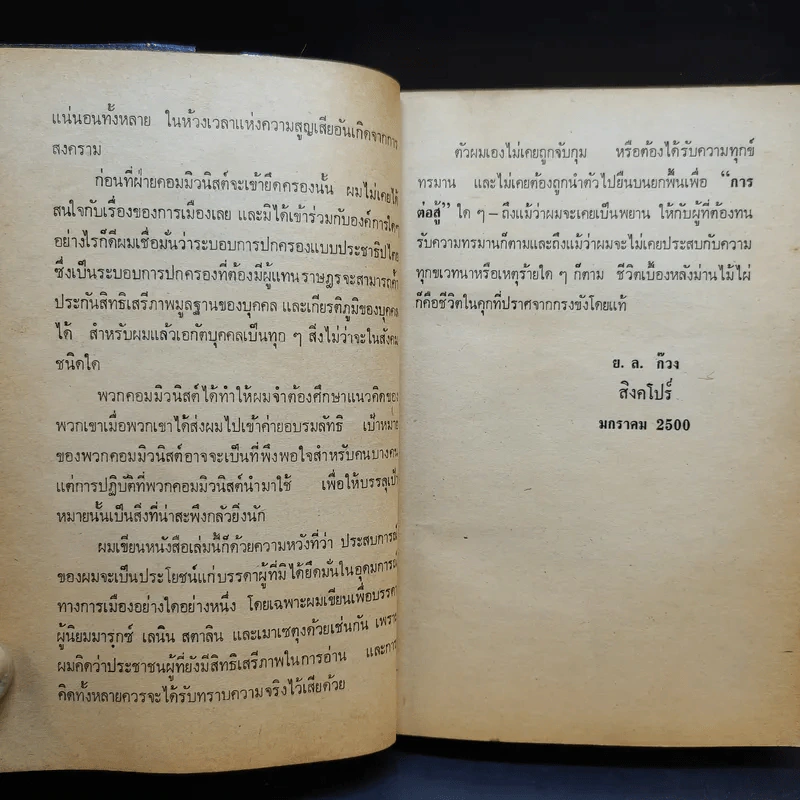 แน่นอนทั้งหลาย ในห้วงเวลาแห่งความสูญเสียอันเกิดจากการ
สงคราม
ก่อนที่ฝ่ายคอมมิวนิสต์จะเข้ายึดครองนั้น ผมไม่เคยได้
สนใจกับเรื่องของการเมืองเลย และมิได้เข้าร่วมกับองค์การใดๆ
อย่างไรก็ดีผมเชื่อมั่นว่าระบอบการปกครองแบบประชาธิปไตย
ซึ่งเป็นระบอบการปกครองที่ต้องมีผู้แทนราษฎรจะสามารถค้ำ
ประกันสิทธิเสรีภาพมูลฐานของบุคคล และเกียรติภูมิของบุคคล
ได้ สำหรับผมแล้วเอกัตบุคคลเป็นทุก ๆ สิ่งไม่ว่าจะในสังคม
ชนิดใด
พวกคอมมิวนิสต์ได้ทำให้ผมจำต้องศึกษาแนวคิดของ
พวกเขาเมื่อพวกเขาได้ส่งผมไปเข้าค่ายอบรมลัทธิ เป้าหมาย
ของพวกคอมมิวนิสต์อาจจะเป็นที่พึงพอใจสำหรับคนบางคน
แต่การปฏิบัติที่พวกคอมมิวนิสต์นำมาใช้ เพื่อให้บรรลุเป้า
หมายนั้นเป็นสิ่งที่น่าสะพึงกลัวยิ่งนัก
ผมเขียนหนังสือเล่มนี้ก็ด้วยความหวังที่ว่า ประสบการณ์
ของผมจะเป็นประโยชน์แก่บรรดาผู้ที่มิได้ยึดมั่นในอุดมการณ์
ทางการเมืองอย่างใดอย่างหนึ่ง โดยเฉพาะผมเขียนเพื่อบรรดา
ผู้นิยมมาร์กซ์ เลนิน สตาลิน และเมาเซตุงด้วยเช่นกัน เพราะ
ผมคิดว่าประชาชนผู้ที่ยังมีสิทธิเสรีภาพในการอ่าน และการ
คิดทั้งหลายควรจะได้รับทราบความจริงไว้เสียด้วย
ตัวผมเองไม่เคยถูกจับกุม หรือต้องได้รับความทุกข์
ทรมาน และไม่เคยต้องถูกนำตัวไปยืนบนยกพื้นเพื่อ “การ
ต่อสู้” ใด ๆ – ถึงแม้ว่าผมจะเคยเป็นพยาน ให้กับผู้ที่ต้องทน
รับความทรมานก็ตามและถึงแม้ว่าผมจะไม่เคยประสบกับความ
ทุกขเวทนาหรือเหตุร้ายใด ๆ ก็ตาม ชีวิตเบื้องหลังม่านไม้ไผ่
ก็คือชีวิตในคุกที่ปราศจากกรงขังโดยแท้
ย. ล. ก๊วง
สิงคโปร์
มกราคม 2500